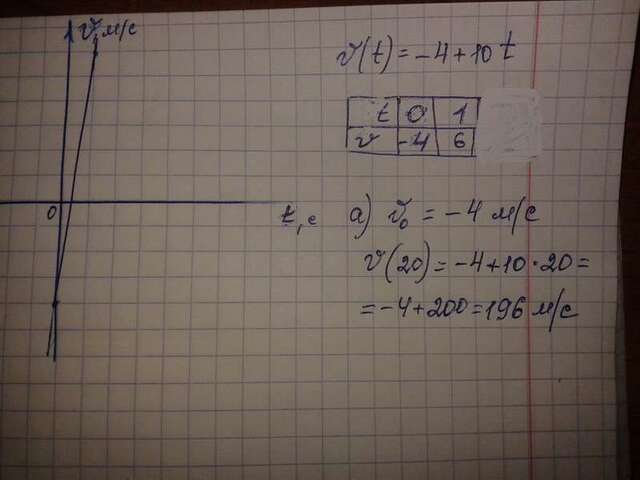 v, м/с
0
t, с
v(t) = -4 + 10t
t 0 1
v -4 6
а) v₀ = -4 м/с
v(20) = -4 + 10·20 =
= -4 + 200 = 196 м/с